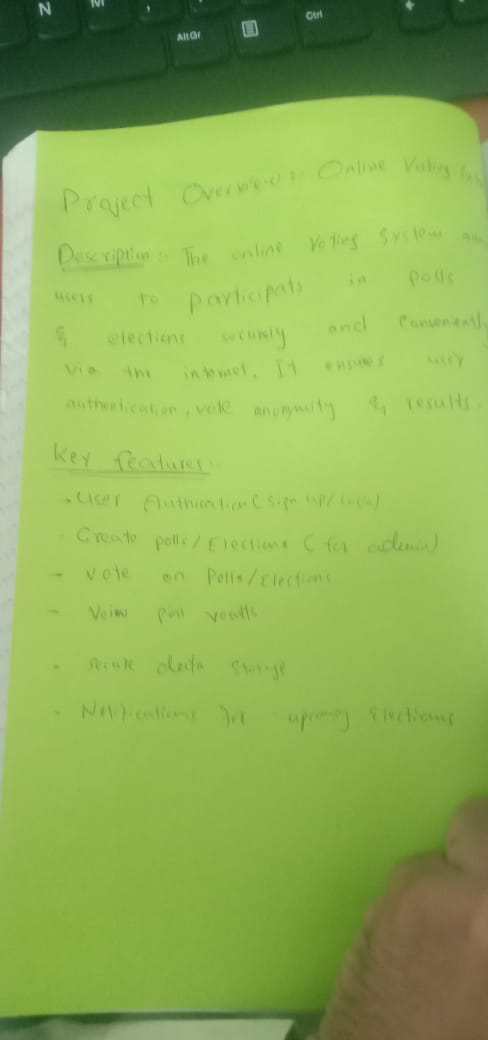 N
M
,
Alt Gr
Ctrl
Project Overview :- Online Voting
Description :- The online Voting System
users to participats in polls
& elections securely and Conveniently
via the internet. It ensures user
authentication, vote anonymity & results.
Key features :-
- User Authication (Sign up/Login)
- Create polls/Elections (for admin)
- Vote on Polls/Elections
- Veiw poll results
- secure data storage
- Notifications for upcoming Elections